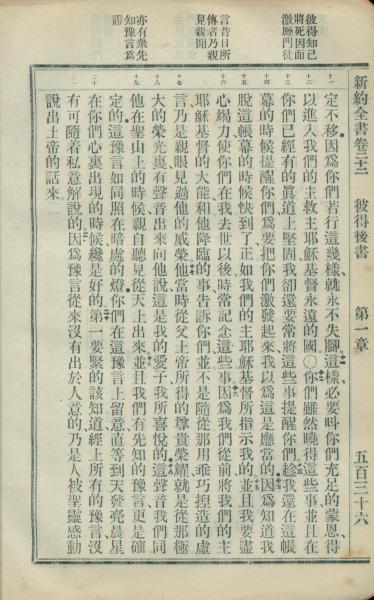 新約全書卷二十二 彼得後書 第一章 五百三十六
彼得知己
將死因而
激厲門徒
言昔日所
傳者乃親
見親聞
亦有衆先
知豫言爲
證
十一
十二
十三
十四
十五
十六
十七
十八
十九
二十
二一
定不移因爲你們若行這幾樣就永不失腳這樣必要呌你們充足的蒙恩得
以進入我們的主救主耶穌基督永遠的國〇你們雖然曉得這些事並且在
你們已經有的眞道上堅固我卻還要常將這些事提醒你們趁我還在這帳
幕的時候提醒你們爲要把你們激發起來我以爲這是應當的因爲知道我
脫這帳幕的時候快到了正如我們的主耶穌基督所指示我的並且我要盡
心竭力使你們在我去世以後時常記念這些事因爲我們從前將我們的主
耶穌基督的大能和他降臨的事告訴你們並不是隨從那用乖巧捏造的虛
言乃是親眼見過他的威榮他當時從父上帝所得的尊貴榮耀就是從那極
大的榮光裏有聲音出來向他說這是我的愛子我所喜悅的這聲音我們同
他在聖山上的時候親自聽見從天上出來並且我們有先知的豫言更是確
定的這豫言如同照在暗處的燈你們在這豫言上留意直等到天發亮晨星
在你們心裏出現的時候纔是好的第一要緊的該知道經上所有的豫言沒
有可隨着私意解說的因爲豫言從來沒有出於人意的乃是人被聖靈感動
說出上帝的話來